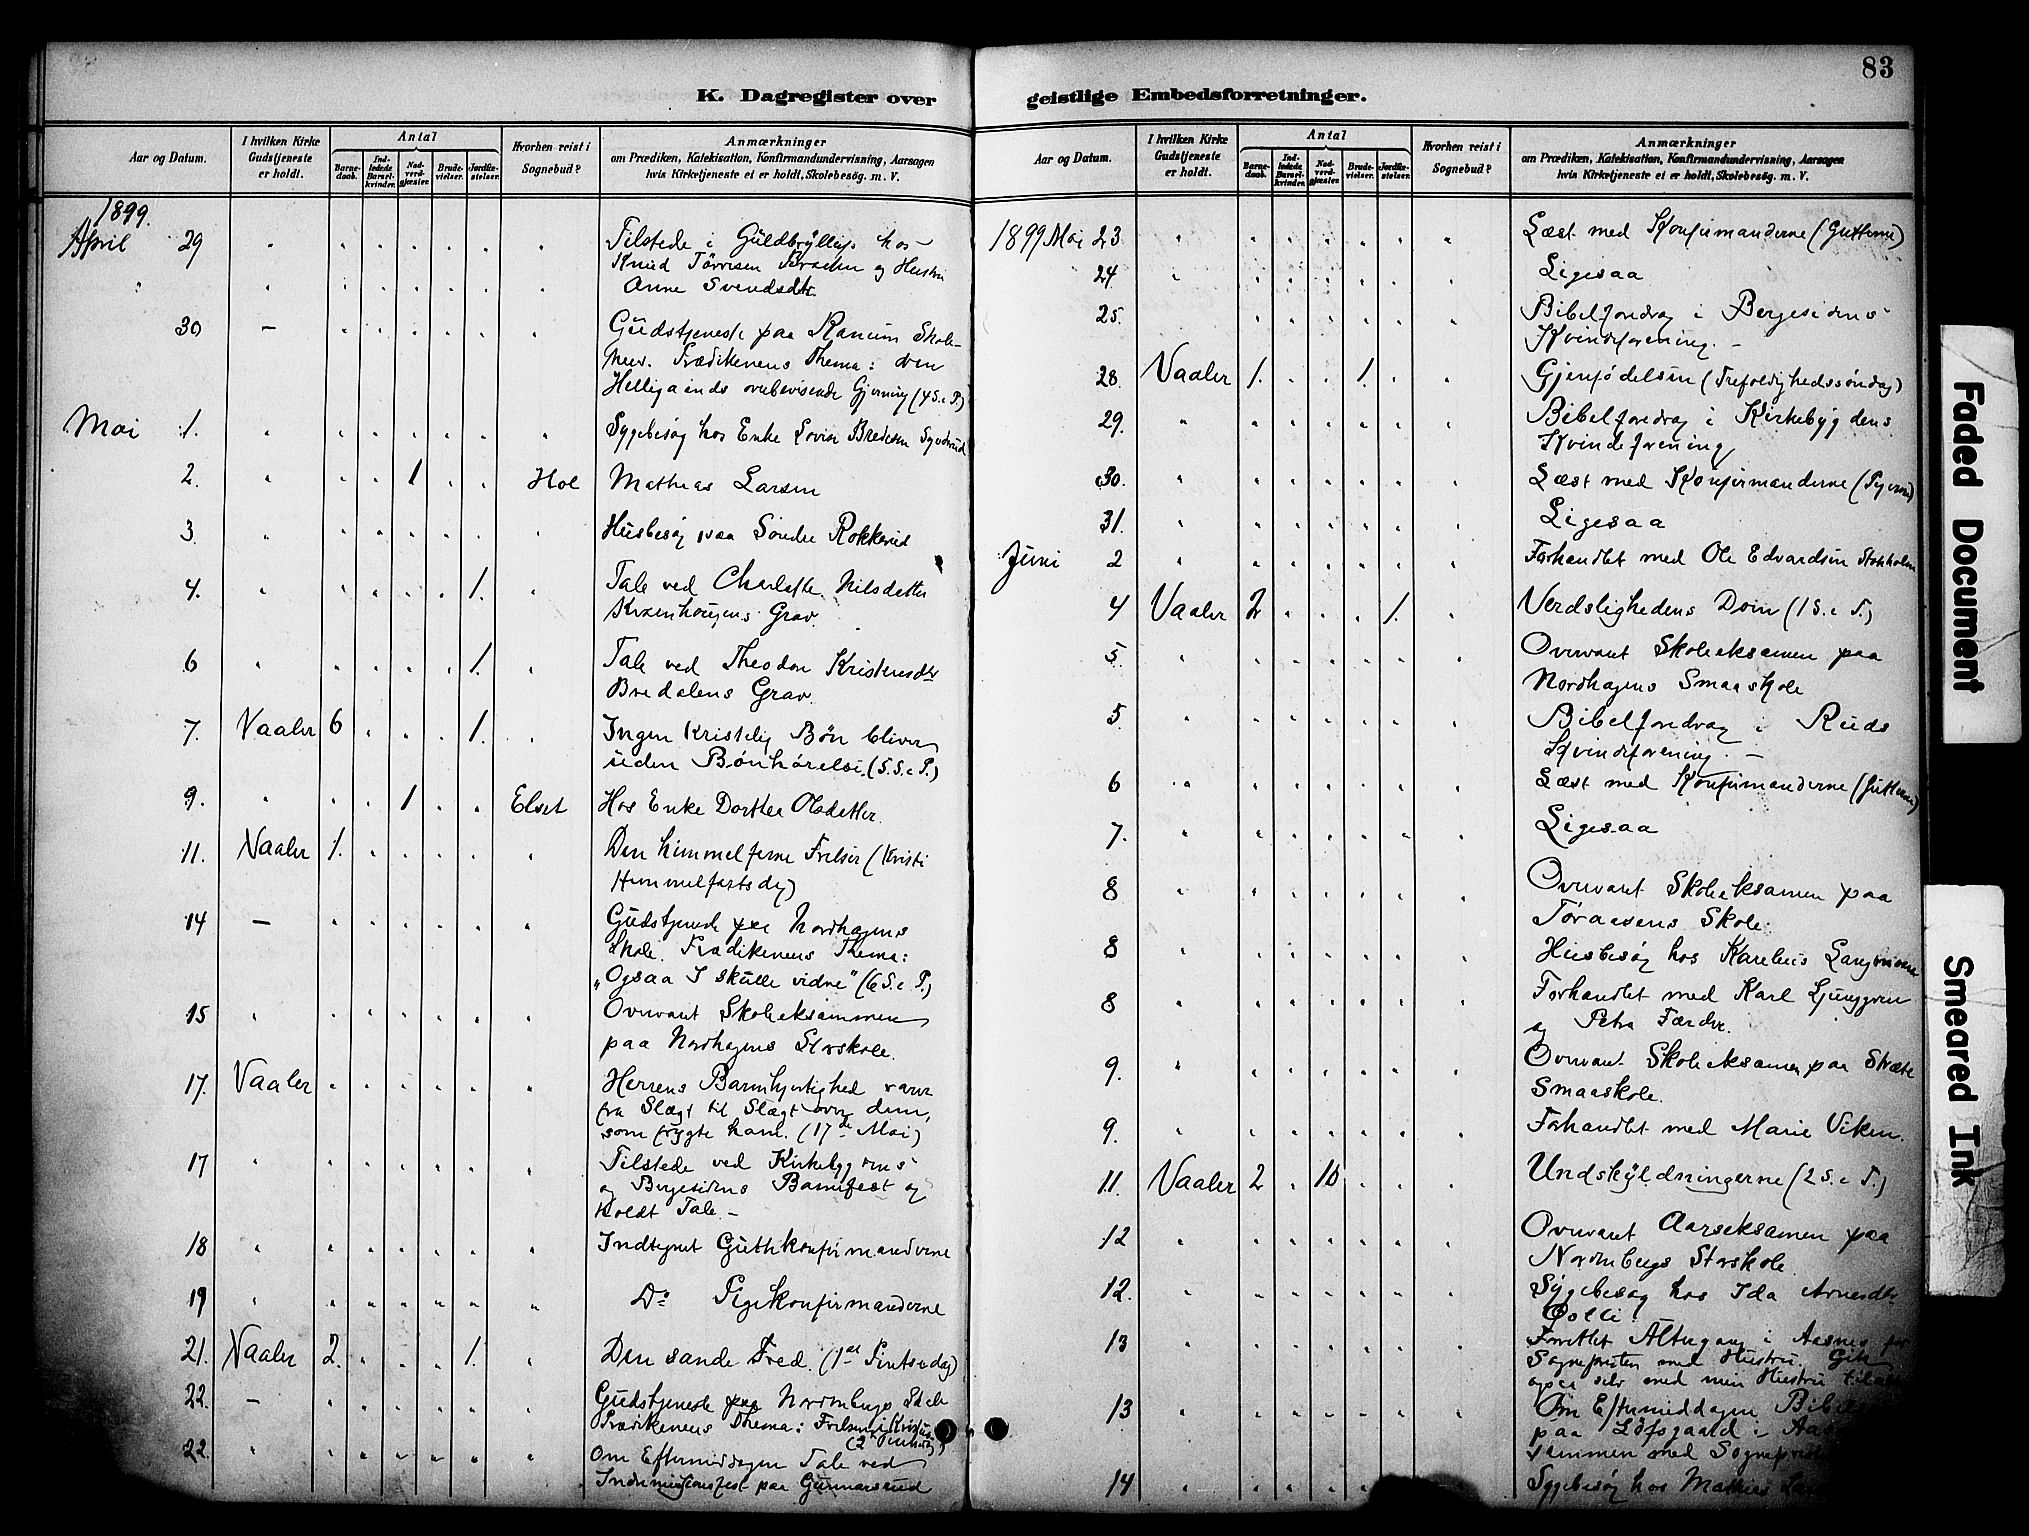 83
K. Dagregister over geistlige Embedsforretninger.
Aar og Datum.
I hvilken Kirke Gudstjeneste er holdt.
Antal
Barne-daab.
Ind-ledede Barsel-kvinder.
Nad-verd-gjæster.
Brude-vielser.
Jordfæ-stelser.
Hvorhen reist i Sognebud?
Anmærkninger
om Prædiken, Katekisation, Konfirmandundervisning, Aarsagen
hvis Kirketjeneste ei er holdt, Skolebesøg. m. V.
1899.
April 29 Tilstede i Guldbryllup hos
Knud Tørrisen Braaten og Hustru
Anne Svendsdtr.
30 — Gudstjeneste paa Ranum Skole-
Prædikenens Thema: den
Helligaands overbevisende Gjerning (4 S. e P.)
Mai 1. Sygebesøg hos Enke Lovise Bredesen
2. 1 Hol Mathias Larsen
3. Husbesøg paa Søndre Rokkerud
4. 1. Tale ved Charlotte Nilsdatter
Grav.
6 1. Tale ved Theodora Kristensdtr
Bredalens Grav.
7. Vaaler 6 1. Ingen Kristelig Bøn bliver
uden Bønhørelse. (5. S. e P.)
9. 1 Elset Hos Enke Dorthea Olsdatter.
11. Vaaler 1. Den himmelfarne Frelser (Kristi
Himmelfartsdag)
14 — Gudstjeneste paa Nordhagens
Skole. Prædikenens Thema:
„Ogsaa I skulle vidne" (6 S. e P.)
15 Overvaret Skoleeksammen
paa Nordhagens Storskole.
17. Vaaler Herrens Barmhjertighed varer
fra Slægt til Slægt over dem,
som frygte ham. (17de Mai)
17 Tilstede ved Kirkebygdens
og Bergesidens Barnefest og
holdt Tale. –
18 Indtegnet Guttekonfirmanderne
19 Do Pigekonfirmanderne
21. Vaaler 2. 1. Den sande Fred. (1ste Pintsedag)
22. — Gudstjeneste paa Nordbergs Skole
Prædikenens Thema: Frelsen i Kristus
22. Om Eftermiddagen Tale ved
Indremissionsfest paa Gunnarsrud
Aar og Datum.
I hvilken Kirke Gudstjeneste er holdt.
Antal
Barne-daab.
Ind-ledede Barsel-kvinder.
Nad-verd-gjæster.
Brude-vielser.
Jordfæ-stelser.
Hvorhen reist i Sognebud?
Anmærkninger
om Prædiken, Katekisation, Konfirmandundervisning, Aarsagen
hvis Kirketjeneste ei er holdt, Skolebesøg. m. V.
1899 Mai 23 Læst med Konfirmanderne (Gutterne)
24 Ligesaa
25. Bibelforedrag i Bergesidens
Kvindeforening. –
28. Vaaler 1. 1. Gjenfødelsen (Trefoldighedssøndag)
29. Bibelforedrag i Kirkebygdens
Kvindeforening
30. Læst med Konfirmanderne (Pigerne)
31. Ligesaa
Juni 2 Forhandlet med Ole Edvardsen Stokholm
4 Vaaler 2 1. Verdslighedens Dom (1 S. e T.)
5. Overvaret Skoleeksamen paa
Nordhagens Smaaskole
5 Bibelforedrag i Ruds
Kvindeforening. –
6 Læst med Konfirmanderne (Gutterne)
7. Ligesaa
8 Overvaret Skoleeksamen paa
Toraasens Skole.
8 Husbesøg hos Karelius
8 Forhandlet med Karl Ljunggren
og Petra Færder.
9. Overvaret Skoleeksamen paa Stræte
Smaaskole.
9. Forhandlet med Marie Viken.
11. Vaaler 2 10 Undskyldningerne (2 S. e T.)
12 Overvaret Aarseksamen paa
Nordbergs Storskole
12. Sygebesøg hos Ida Arnesdtr
13 Forrettet Altergang i Aasnes for
Sognepresten med Hustru. Gik
ogsaa selv med min Hustru
13 Om Eftermiddagen
paa Løfsgaard i
sammen med
14 Sygebesøg hos Mathias
Faded Document
Smeared Ink